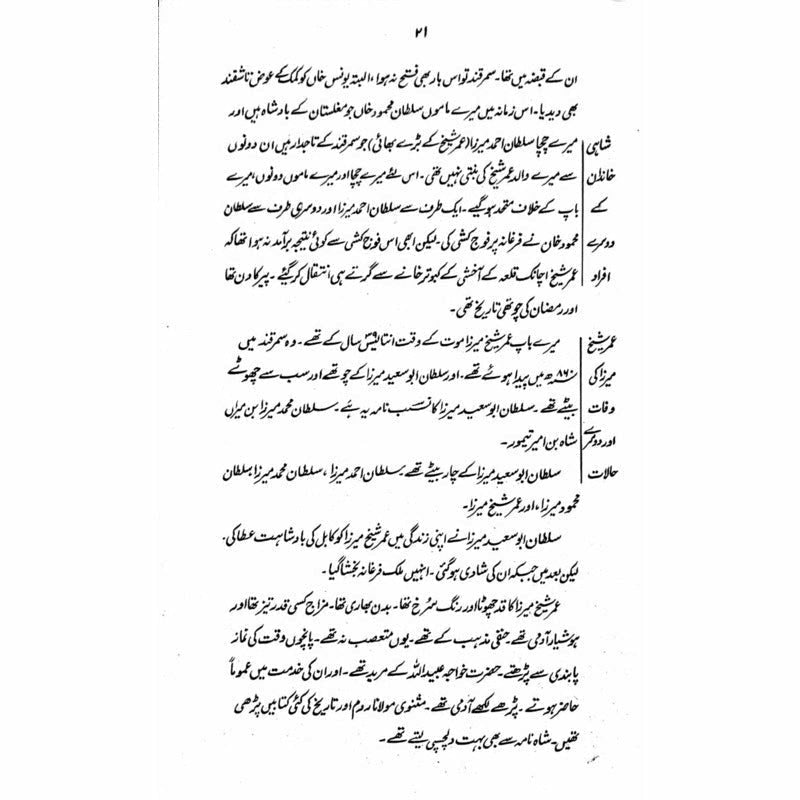 ۲۱
ان کے قبضہ میں تھا۔ سمرقند تو اس بار بھی فتح نہ ہوا، البتہ یونس خاں کو کمک کے عوض تاشقند
بھی دیدیا۔ اس زمانہ میں میرے ماموں سلطان محمود خاں جو مغلستان کے بادشاہ ہیں اور
شاہی
میرے چچا سلطان احمد میرزا (عمر شیخ کے بڑے بھائی) جو سمرقند کے تاجدار ہیں ان دونوں
خاندان
سے میرے والد عمر شیخ کی بنتی نہیں تھی۔ اس لئے میرے چچا اور میرے ماموں دونوں، میرے
کے
باپ کے خلاف متحد ہو گیے۔ ایک طرف سے سلطان احمد میرزا اور دوسری طرف سے سلطان
دوسرے
محمود خان نے فرغانہ پر فوج کشی کی۔ لیکن ابھی اس فوج کشی سے کوئی نتیجہ برآمد نہ ہوا تھا کہ
افراد
عمر شیخ اچانک قلعہ کے آخشی کے کبوتر خانے سے گرتے ہی انتقال کر گئے۔ پیر کا دن تھا
اور رمضان کی چوتھی تاریخ تھی۔
عمر شیخ
میرے باپ عمر شیخ میرزا موت کے وقت انتالیس ۳۹ سال کے تھے۔ وہ سمرقند میں
میرزا کی
۸۶۰ھ میں پیدا ہوئے تھے۔ اور سلطان ابو سعید میرزا کے چوتھے اور سب سے چھوٹے
وفات
بیٹے تھے۔ سلطان ابو سعید میرزا کا نسب نامہ یہ ہے۔ سلطان محمد میرزا بن میراں
اور دوسرے
شاہ بن امیر تیمور۔
حالات
سلطان ابو سعید میرزا کے چار بیٹے تھے۔ سلطان احمد میرزا، سلطان محمد میرزا، سلطان
محمود میرزا، اور عمر شیخ میرزا۔
سلطان ابو سعید میرزا نے اپنی زندگی میں عمر شیخ میرزا کو کابل کی بادشاہت عطا کی۔
لیکن بعد میں جبکہ ان کی شادی ہو گئی۔ انہیں ملک فرغانہ بخشا گیا۔
عمر شیخ میرزا کا قد چھوٹا اور رنگ سرخ تھا۔ بدن بھاری تھا۔ مزاج کسی قدر تیز تھا اور
ہوشیار آدمی تھے۔ حنفی مذہب کے تھے۔ یوں متعصب نہ تھے۔ پانچوں وقت کی نماز
پابندی سے پڑھتے۔ حضرت خواجہ عبید اللہ کے مرید تھے۔ اور ان کی خدمت میں عموماً
حاضر ہوتے۔ پڑھے لکھے آدمی تھے۔ مثنوی مولانا روم اور تاریخ کی کئی کتابیں پڑھی
تھیں۔ شاہ نامہ سے بھی بہت دلچسپی لیتے تھے۔